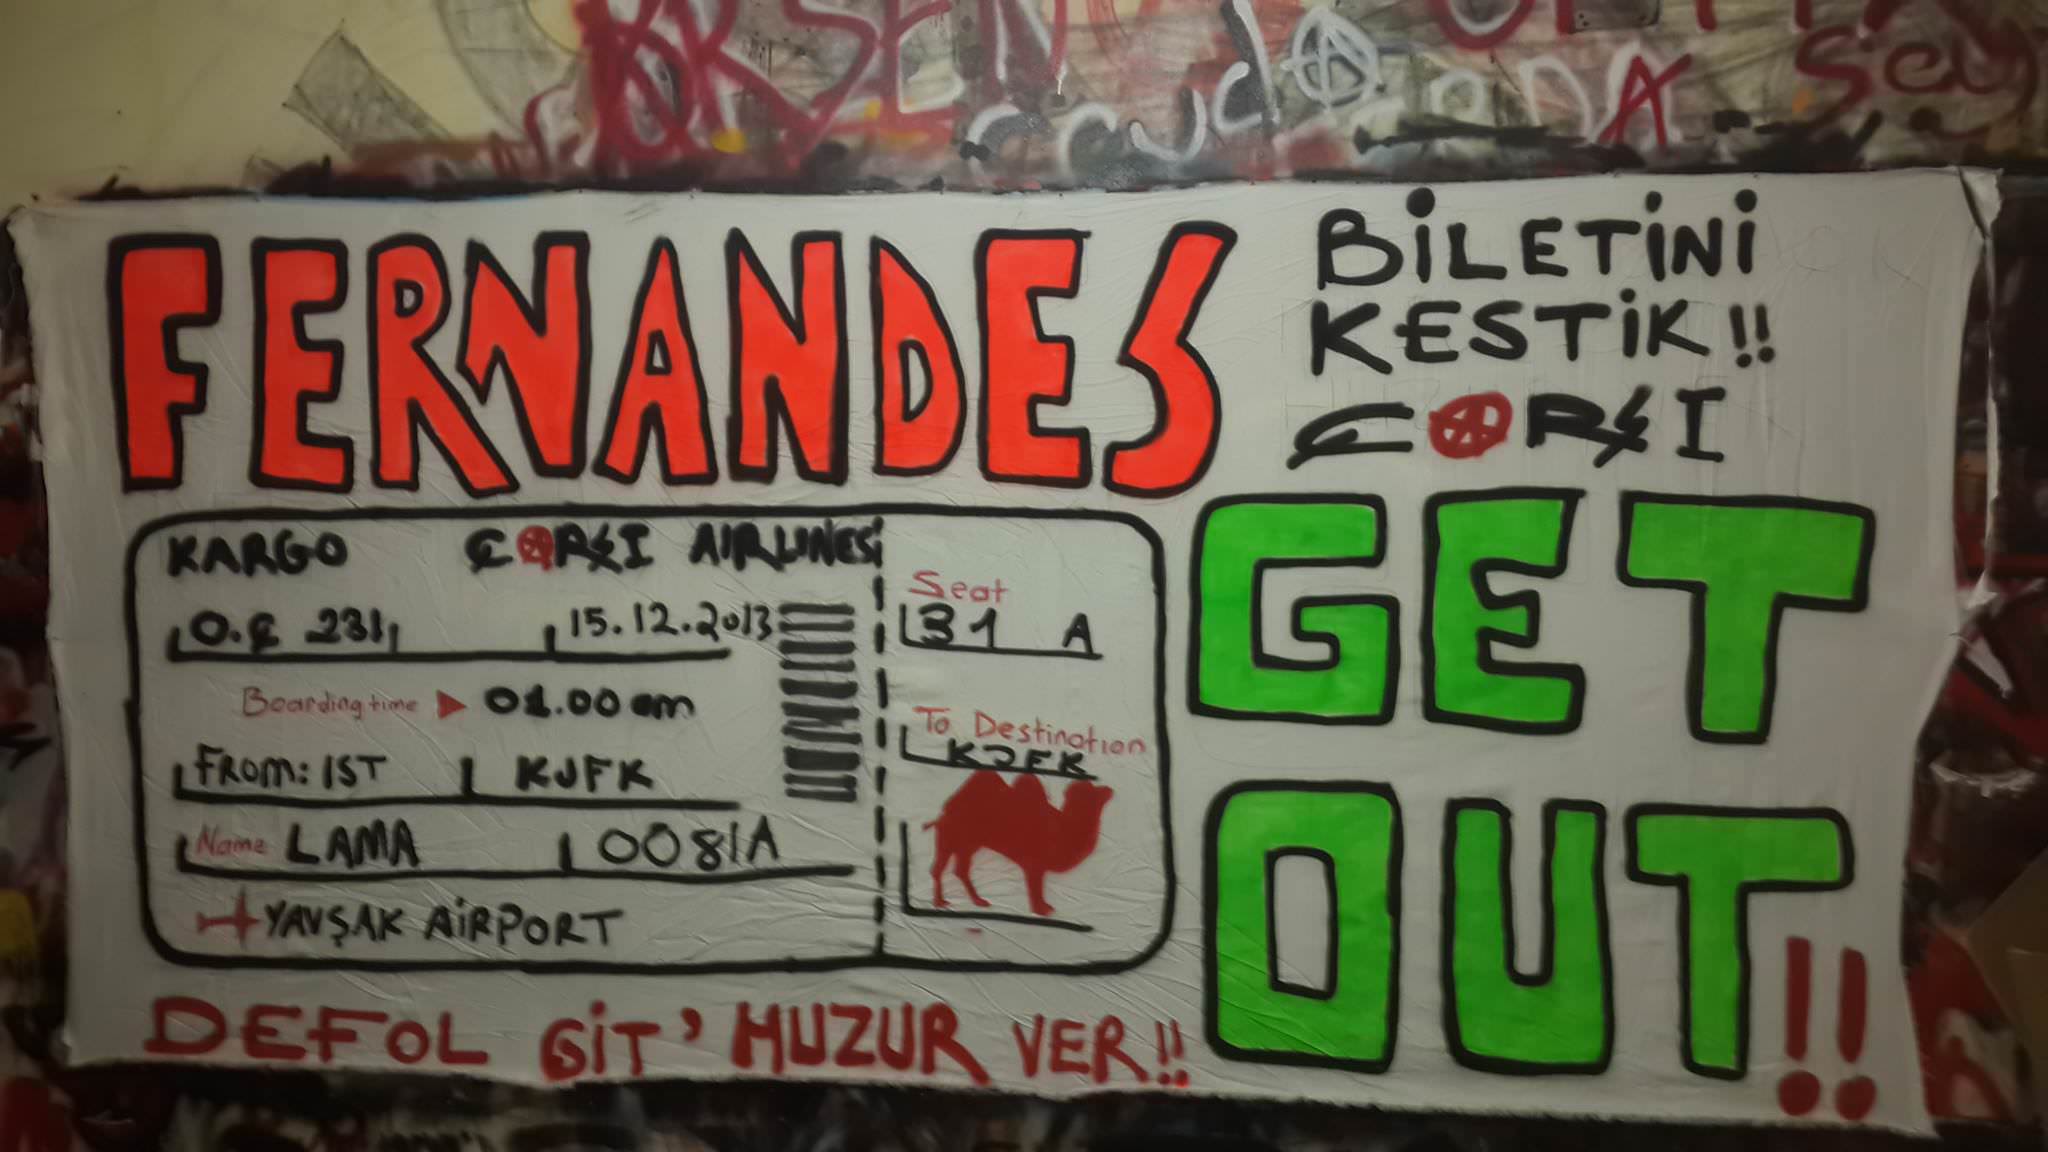 FERNANDES
BİLETİNİ
KESTİK!!
ÇARŞI
GET
OUT!!
KARGO ÇARŞI AIRLINESİ
O.Ç 231 15.12.2013
Boarding time 01.00 am
FROM: IST KJFK
Name LAMA 0081A
YAVŞAK AİRPORT
Seat
31 A
To Destination
KJFK
DEFOL GİT' HUZUR VER!!